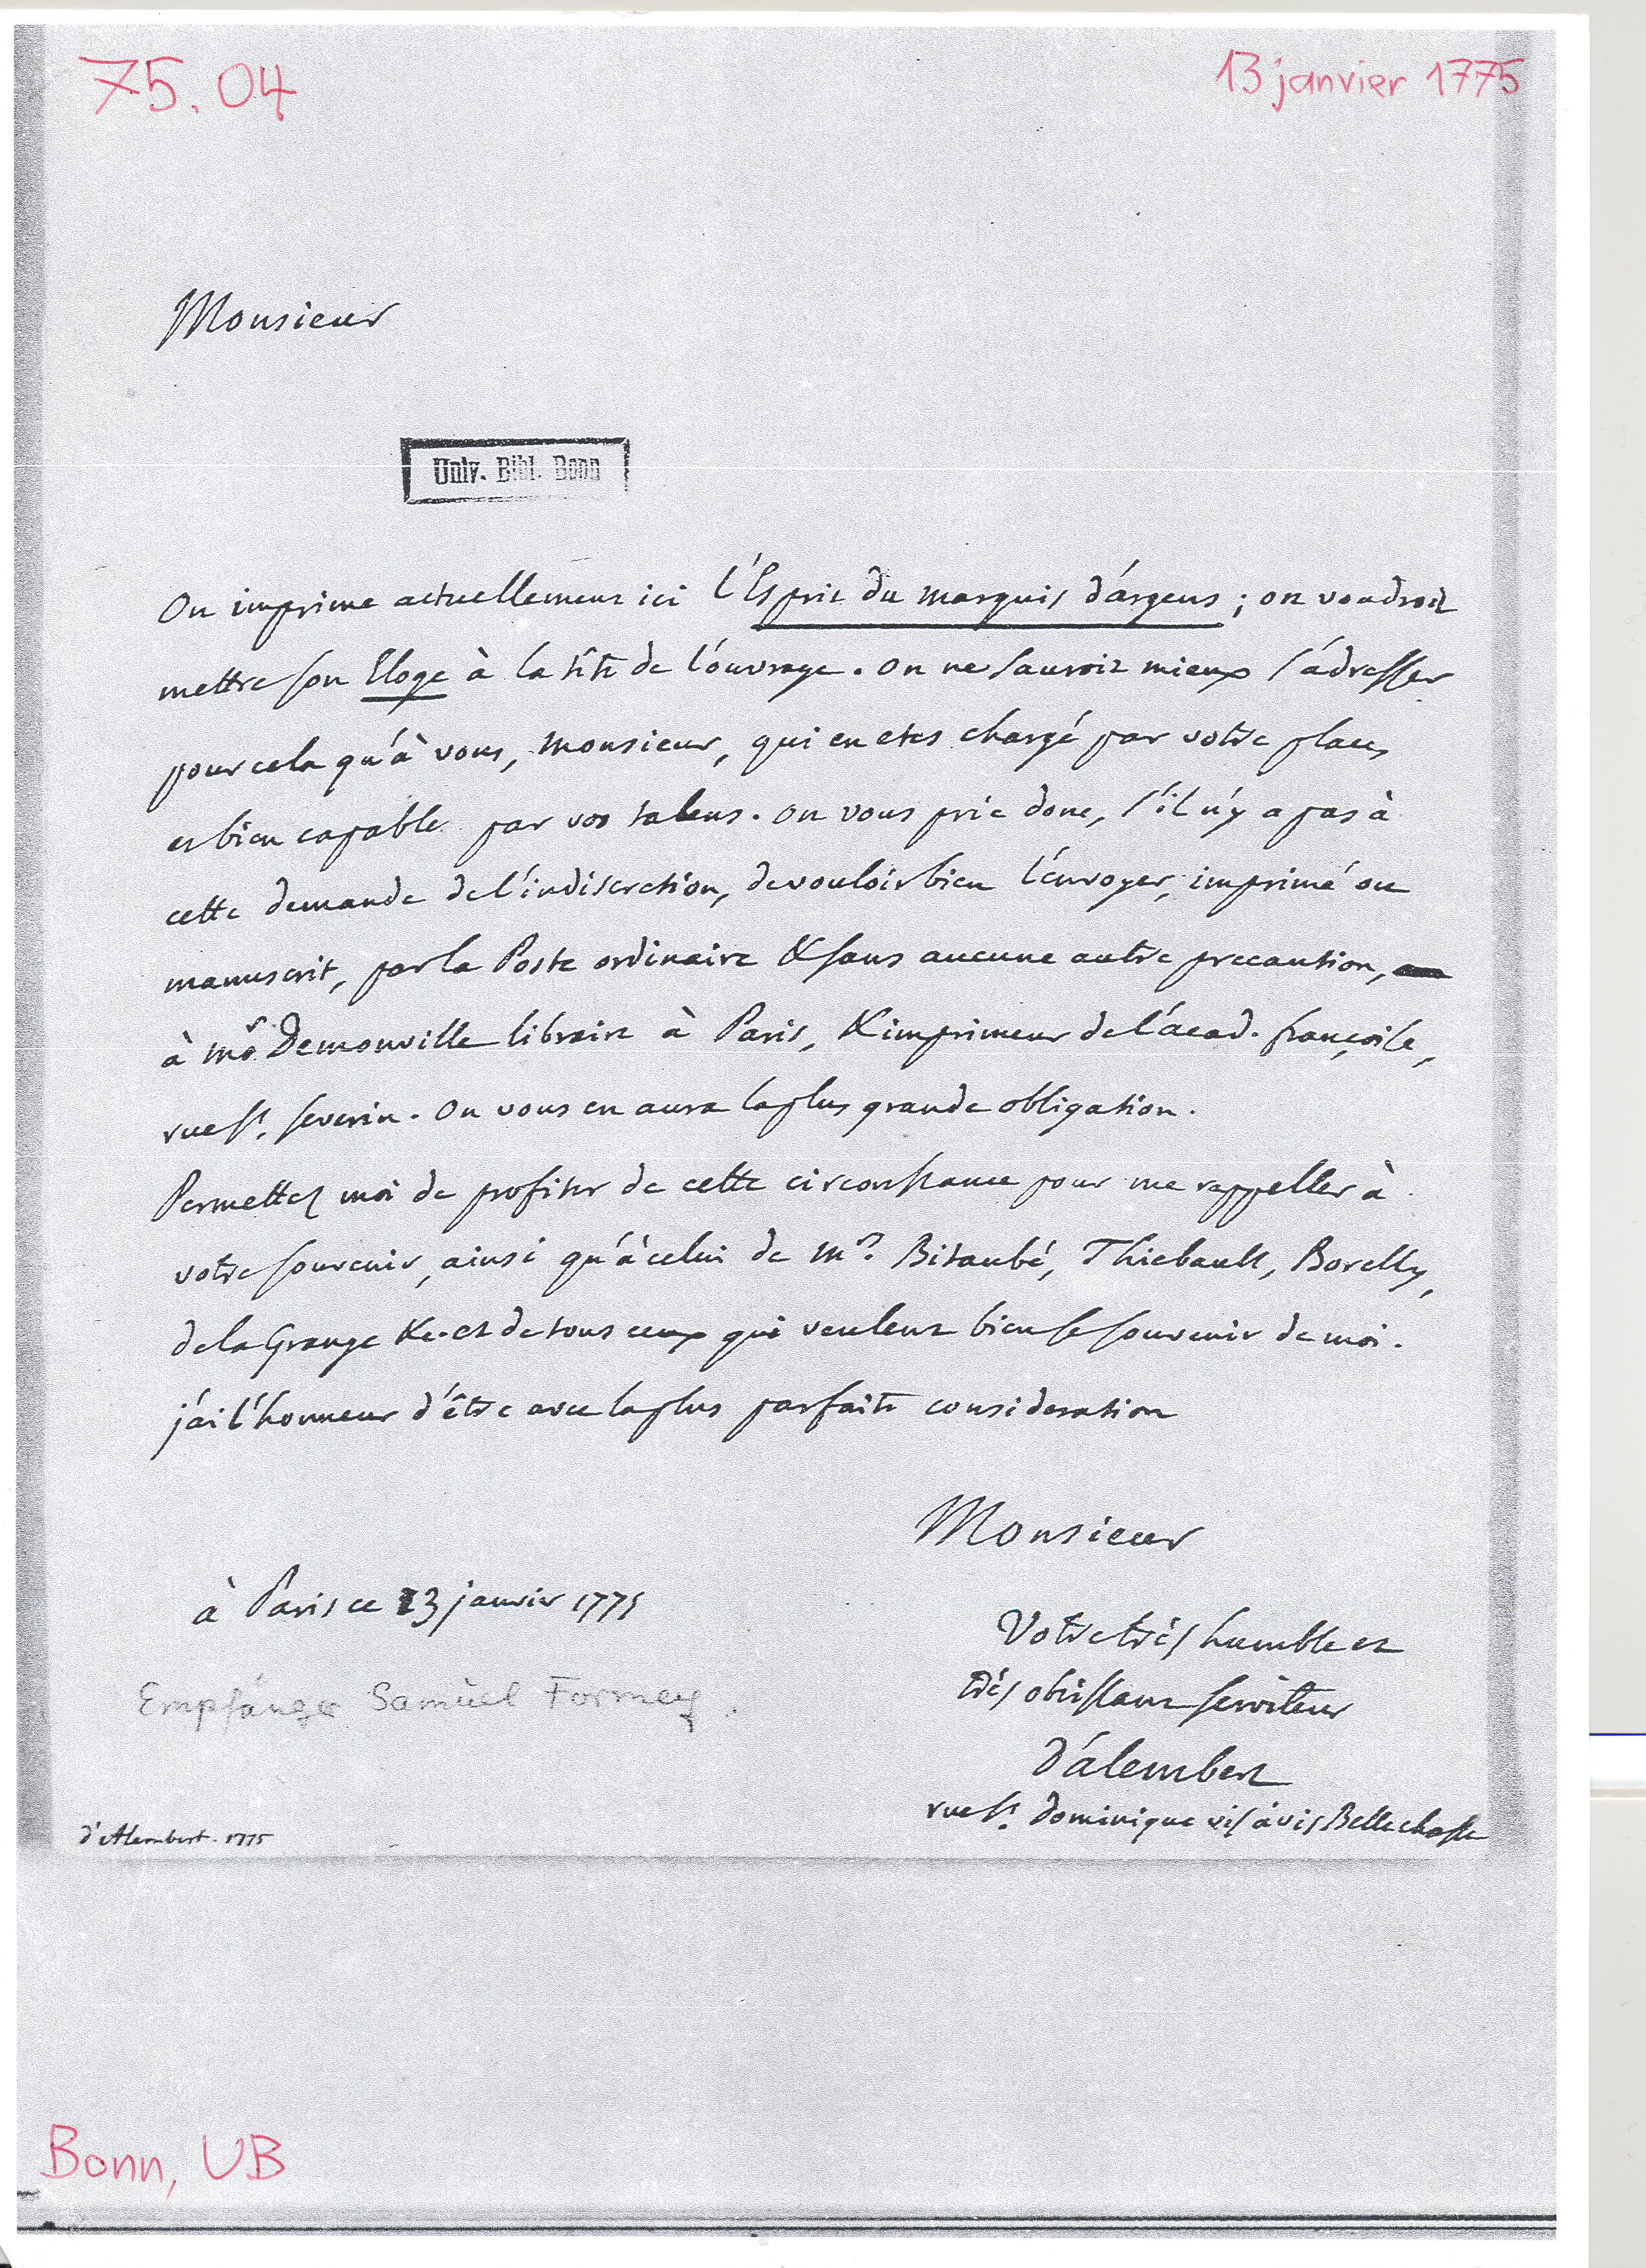 75.04
13 janvier 1775
Monsieur
Univ. Bibl. Bonn
On imprime actuellement ici l'Esprit du marquis d'argens ; on voudroit
mettre son Eloge à la tête de l'ouvrage. on ne sauroit mieux s'adresser
pour cela qu'à vous, monsieur, qui en etes chargé par votre place,
et bien capable par vos talens. on vous prie donc, s'il n'y a pas à
cette demande de l'indiscretion, de vouloir bien l'envoyer, imprimé ou
manuscrit, par la Poste ordinaire & sans aucune autre precaution,
à mr. Demonville libraire à Paris, & imprimeur de l'acad. françoise,
rue St. severin. On vous en aura la plus grande obligation.
Permettez moi de profiter de cette circonstance pour me rappeller à
votre souvenir, ainsi qu'à celui de mrs. Bitaubé, Thiebault, Borelly,
de la Grange &c. et de tous ceux qui veulent bien se souvenir de moi.
j'ai l'honneur d'être avec la plus parfaite consideration
Monsieur
à Paris ce 13 janvier 1775
Votre très humble et
très obéissant serviteur
D'alembert
rue St. dominique vis à vis Bellechasse
Empfänger Samuel Formey.
d'Alembert. 1775
Bonn, UB